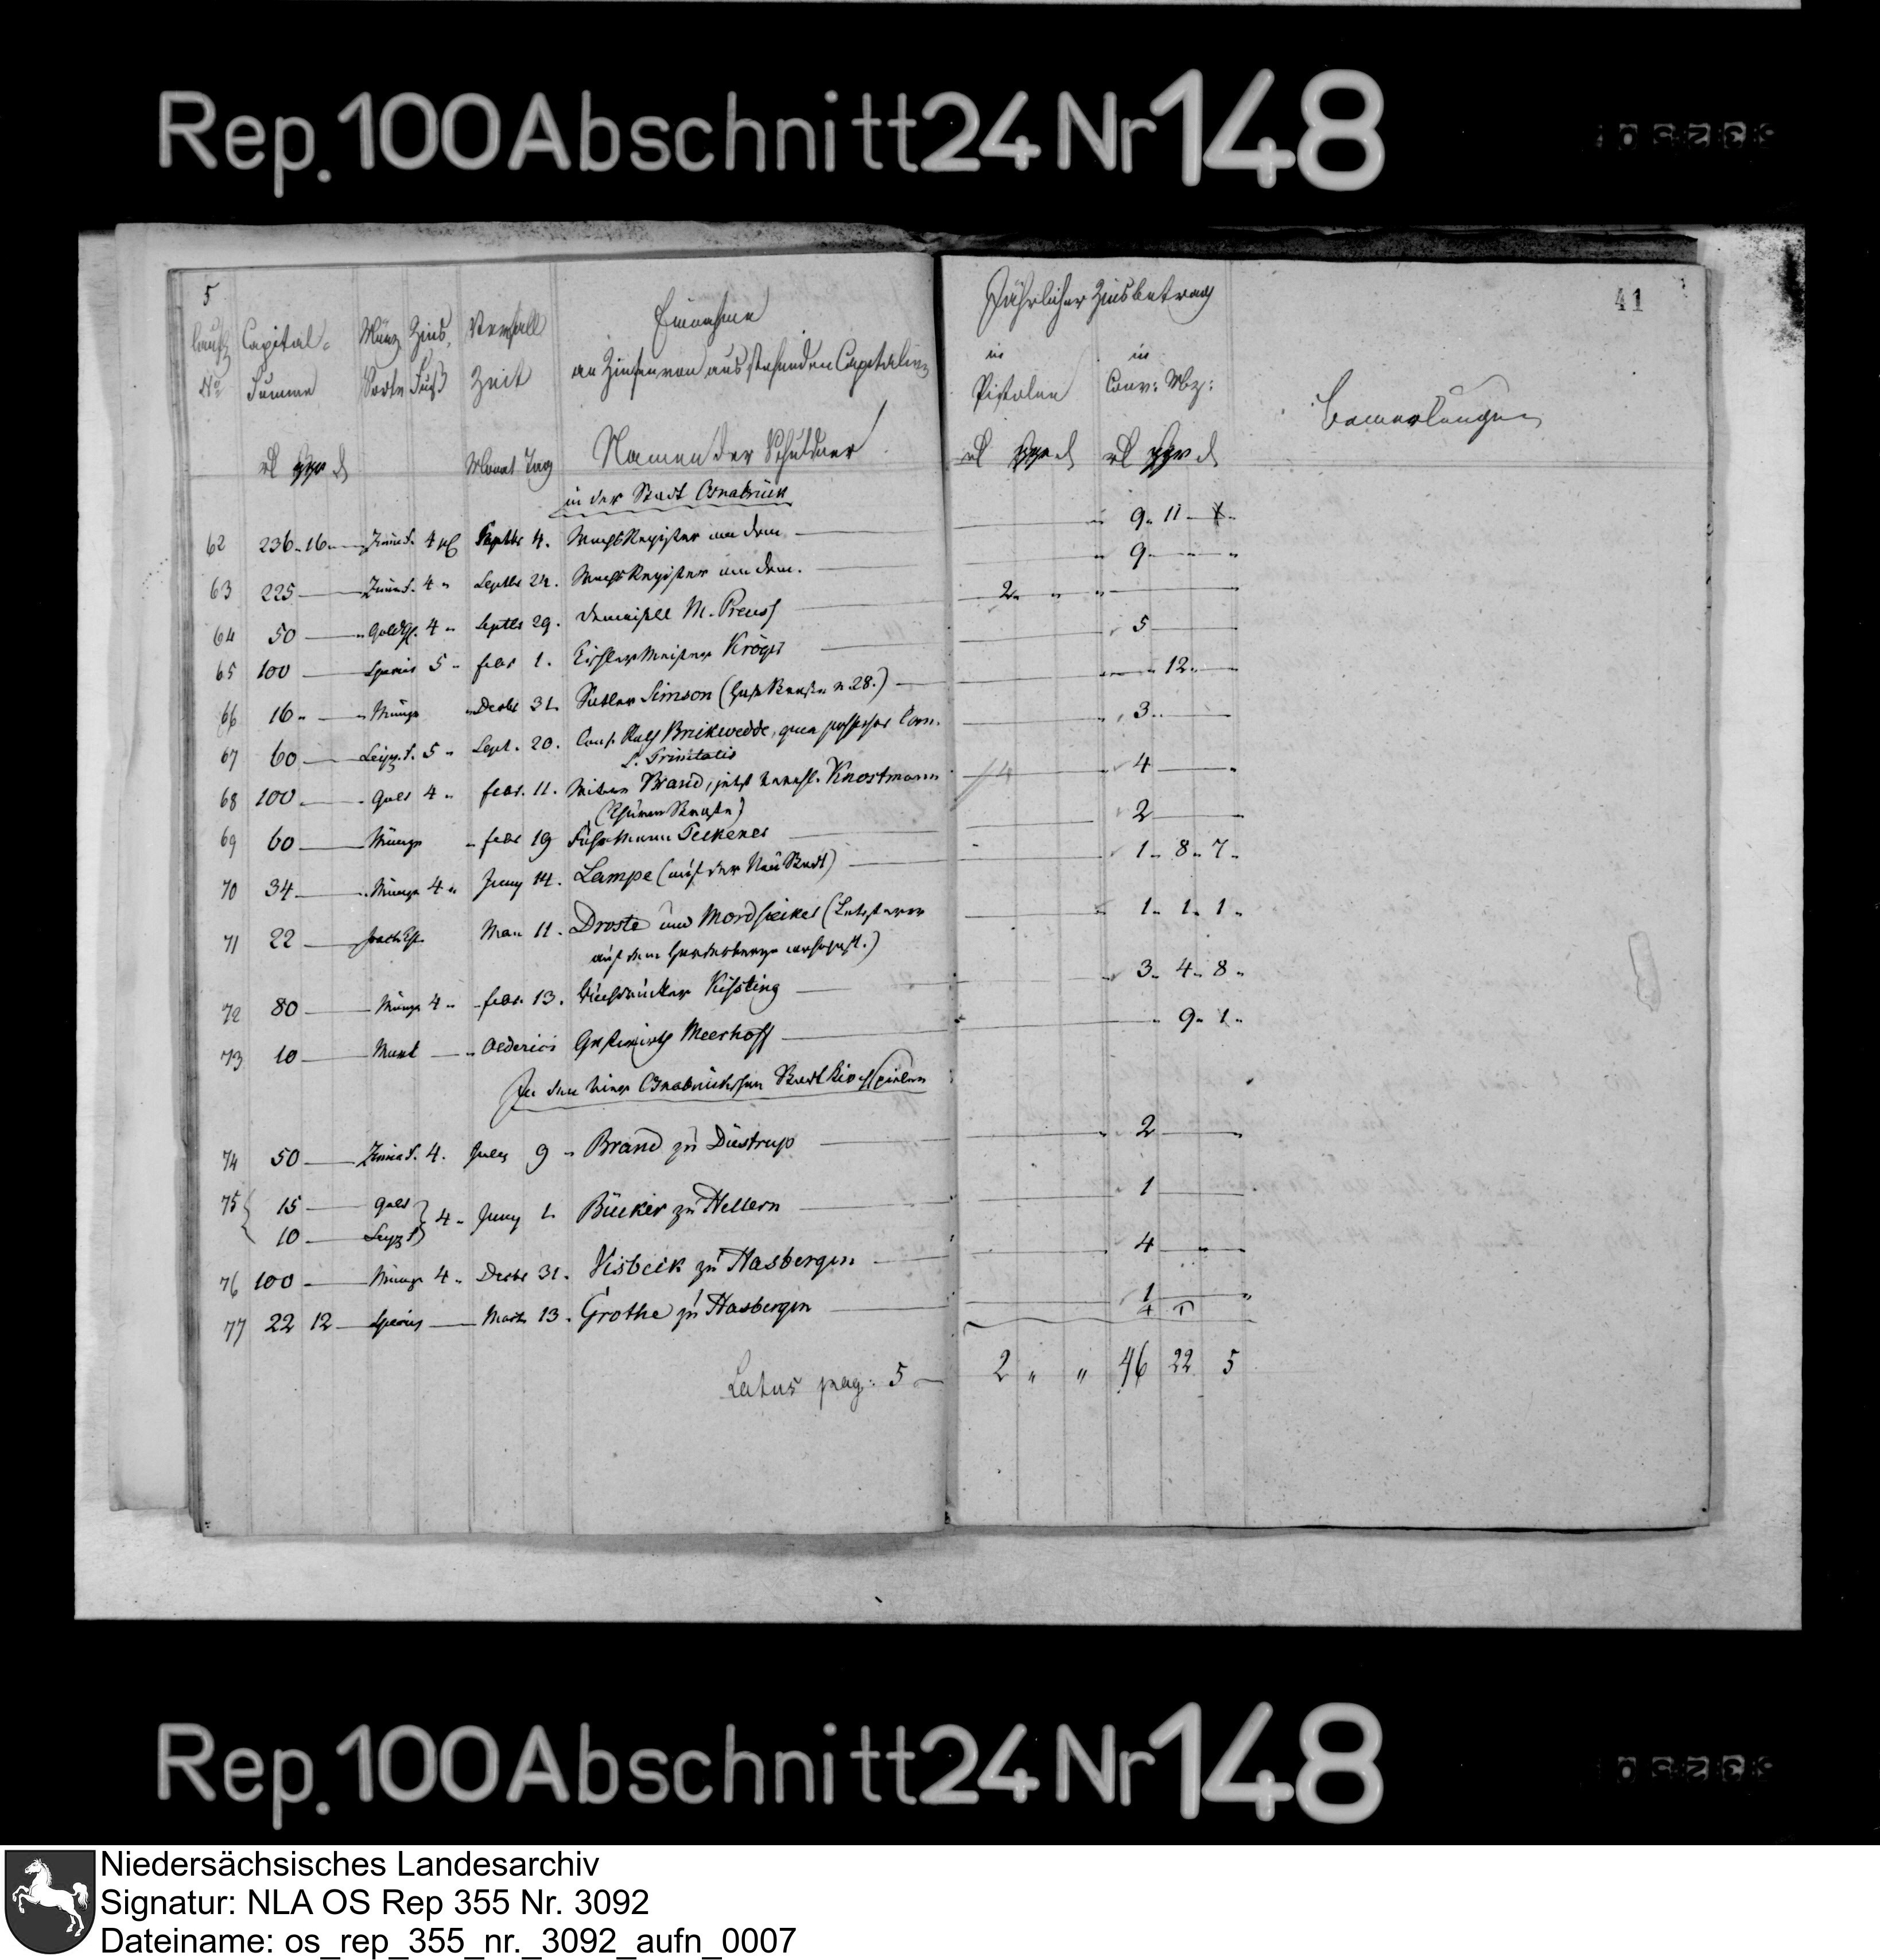 Rep. 100 Abschnitt 24 Nr 148
5
41
laufd Capital- Münz Zins Verfall Einnahme Jährlicher Zinsbetrag
No Summe Sorte Fuß Zeit an Zinsen von ausstehenden Capitalien in Pistolen in Conv: Mz: Bemerkungen
rl ggr d Monat Tag Namen der Schuldner rl ggr d rl ggr d
in der Stadt Osnabrück
62 236 " 16 Septbr 4. 9 " 11
63 225 4 " Septbr 24. 9
64 50 Goldgl. 4 " Septbr 29. Demoisell M. Preuss 2 "
65 100 Species 5 " febr 1. Tischler Meister Kröger 5
66 16 " Münze Decbr 31. Simson ( n. 28.) 12
67 60 Leipz. 5 " Sept. 20. Brickwedde, qua possessor Com. 3
S. Trinitatis
68 100 Gold 4 " febr. 11. Witwe Brand, jetzt verehl. Knostmann 4 4
69 60 Münze febr 19 Fuhrmann 2
70 34 Münze 4 " Juny 14. Lampe (auf der Neu Stadt) 1 " 8 " 7
71 22 11. Droste und (Letzterer 1 " 1 " 1
auf dem
72 80 Münze 4 " febr. 13. Buchdrucker Kißling 3 " 4 " 8
73 10 Gastwirth Meerhoff 9 " 1
In den vier Osnabrückschen Stadt Kirchspielen
74 50 4. July 9 Brand zu Düstrup 2
75 15 Gold 4 " Juny 1. Bücker zu Hellern 1
10 Leipz
76 100 Münze 4 " Decbr 31. Visbeck zu Hasbergen 4
77 22 12 Species 13. Grothe zu Hasbergen 1
Latus pag: 5 2 " " 46 22 5
Rep. 100 Abschnitt 24 Nr 148
Niedersächsisches Landesarchiv
Signatur: NLA OS Rep 355 Nr. 3092
Dateiname: os_rep_355_nr._3092_aufn_0007